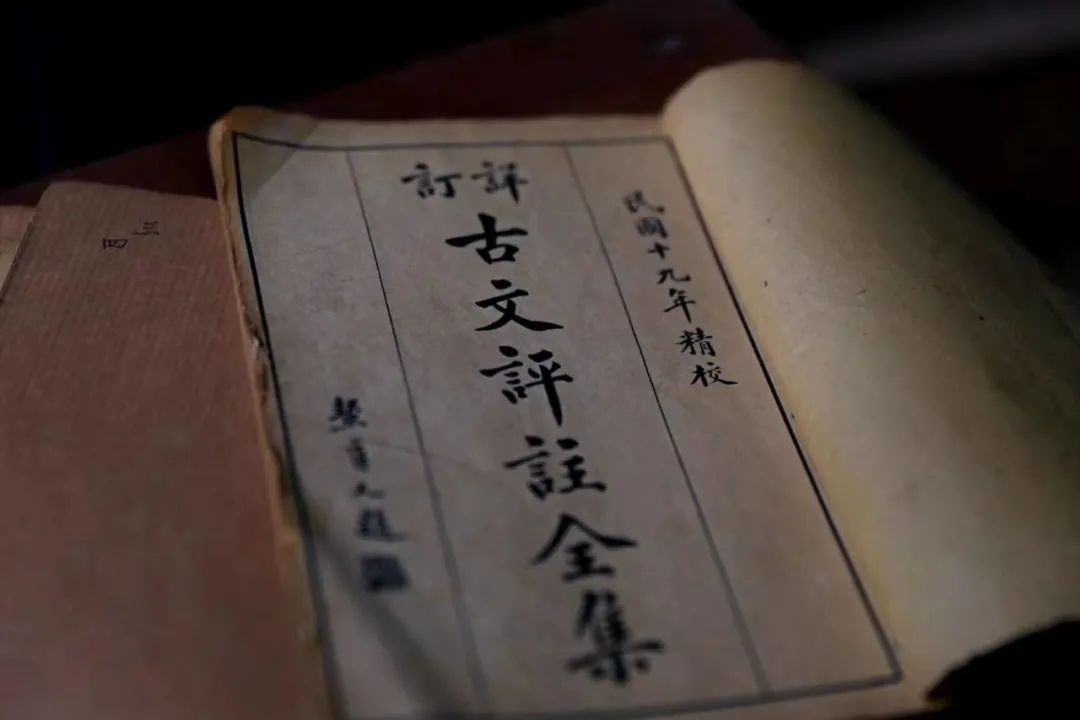 民國十九年精校
詳訂
古文評註全集
題
三
四